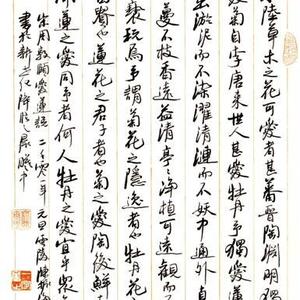 陸草木之花可愛者甚蕃晉陶淵明獨
愛菊自李唐来世人甚愛牡丹予獨愛蓮
出淤泥而不染濯清漣而不妖中通外直
蔓不枝香遠益清亭々淨植可遠觀而不
褻玩焉予謂菊花之隱逸者也牡丹花
富貴者也蓮花之君子者也菊之愛陶後鮮
蓮之愛同予者何人牡丹之愛宜乎衆
宋周敦頤愛蓮說 年元旦雲陽陳
書於新 之晨曦中